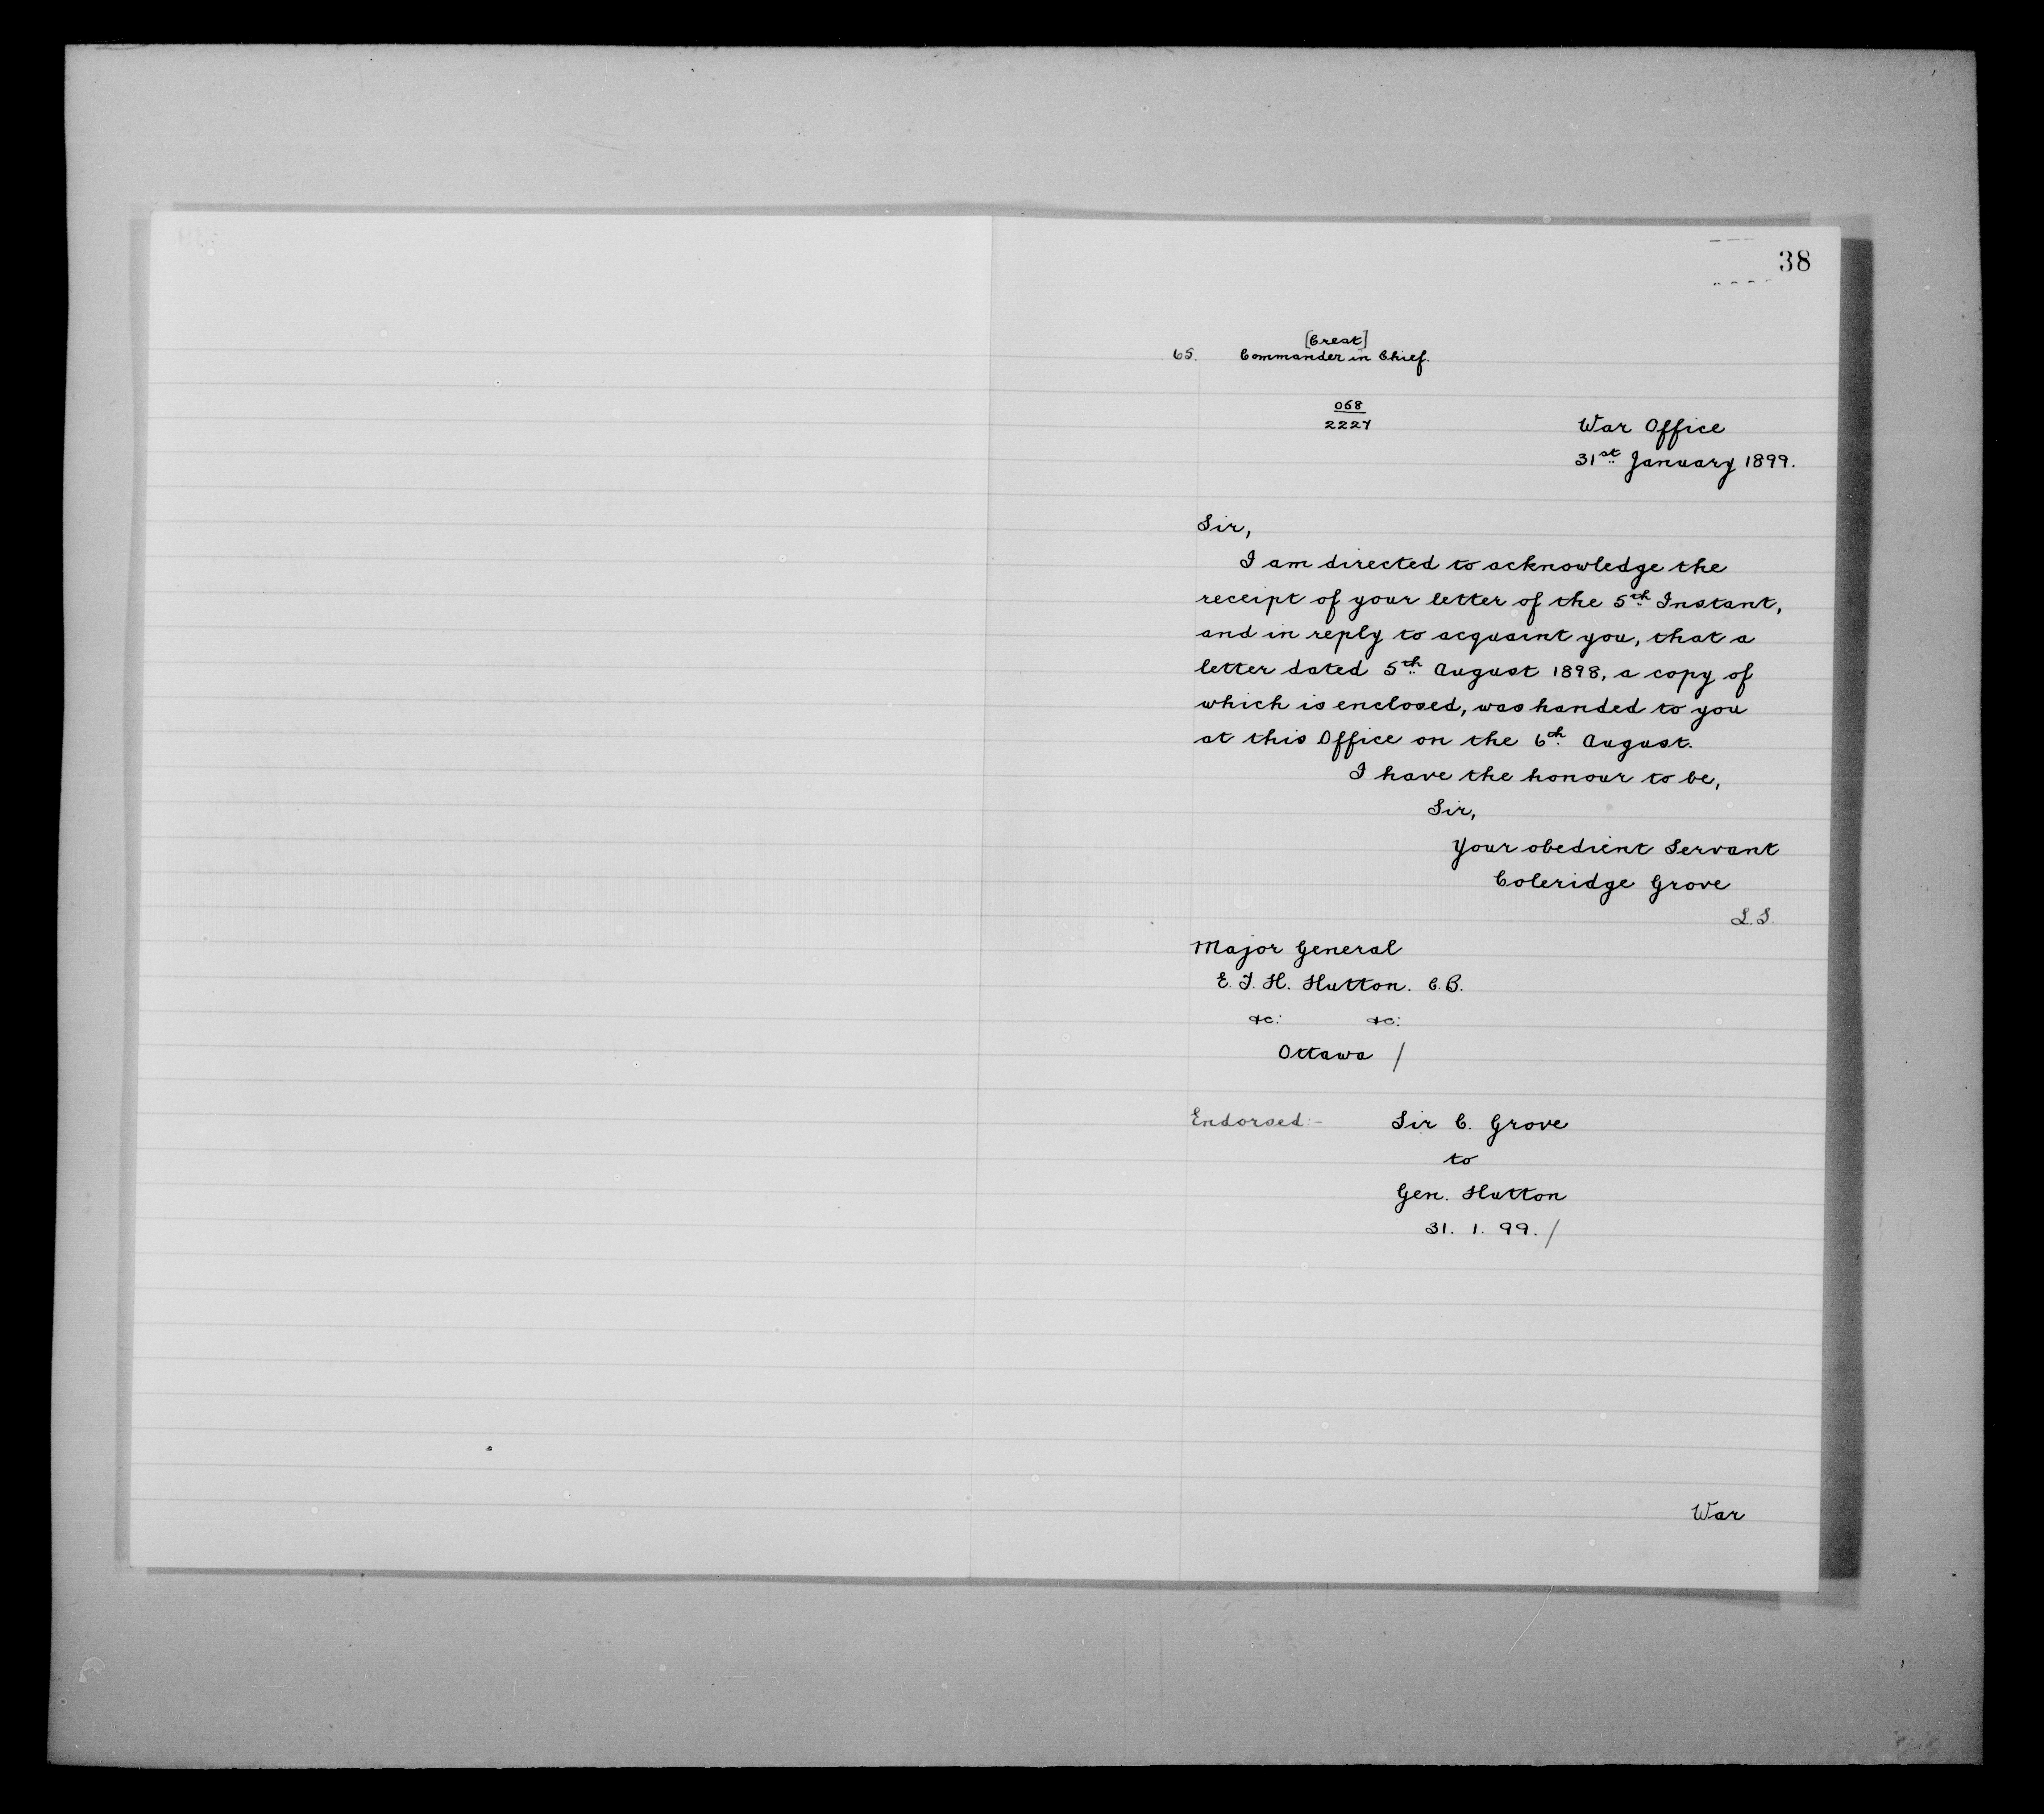 38
[Crest]
65. Commander in Chief.
068
2227
War Office
31st January 1899.
Sir,
I am directed to acknowledge the
receipt of your letter of the 5th Instant,
and in reply to acquaint you, that a
letter dated 5th August 1898, a copy of
which is enclosed, was handed to you
at this Office on the 6th August.
I have the honour to be,
Sir,
Your obedient Servant
Coleridge Grove
L.S.
Major General
E. T. H. Hutton. C.B.
&c: &c:
Ottawa /
Endorsed:- Sir C. Grove
to
Gen. Hutton
31. 1. 99. /
War